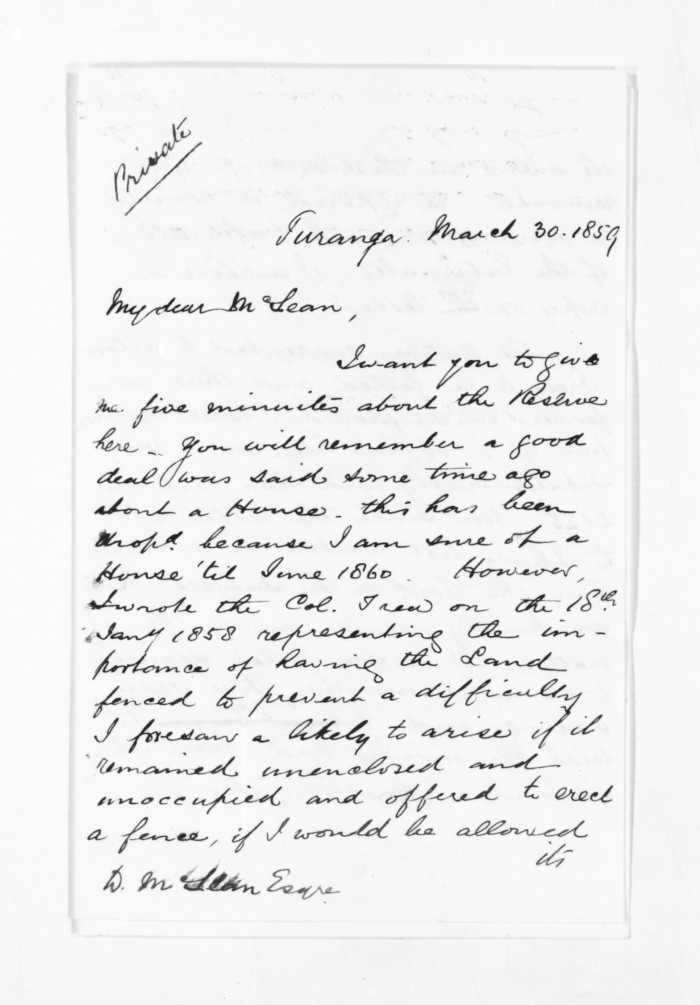 Private
Turanga. March 30. 1859
My dear McLean,
I want you to give
me five minutes about the Reserve
here - You will remember a good
deal was said some time ago
about a House. this has been
dropd. because I am sure of a
House 'til June 1860. However,
I wrote the Col. Treas on the 18th
Jany 1858 representing the im-
portance of having the Land
fenced to prevent a difficulty
I foresaw a likely to arise if it
remained unenclosed and
unoccupied and offered to erect
a fence, if I would be allowed
its
D. McLean Esqre